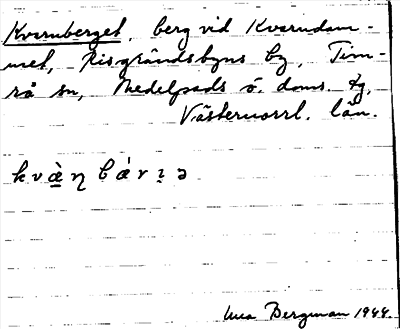 Kvarnberget, berg vid Kvarndam-
met, Risgrändsbyns by, Tim-
rå sn, Medelpads ö. doms. tg,
Västernorrl. län.
kvæ̀ṇbárı̣ə
Bergman 1944.